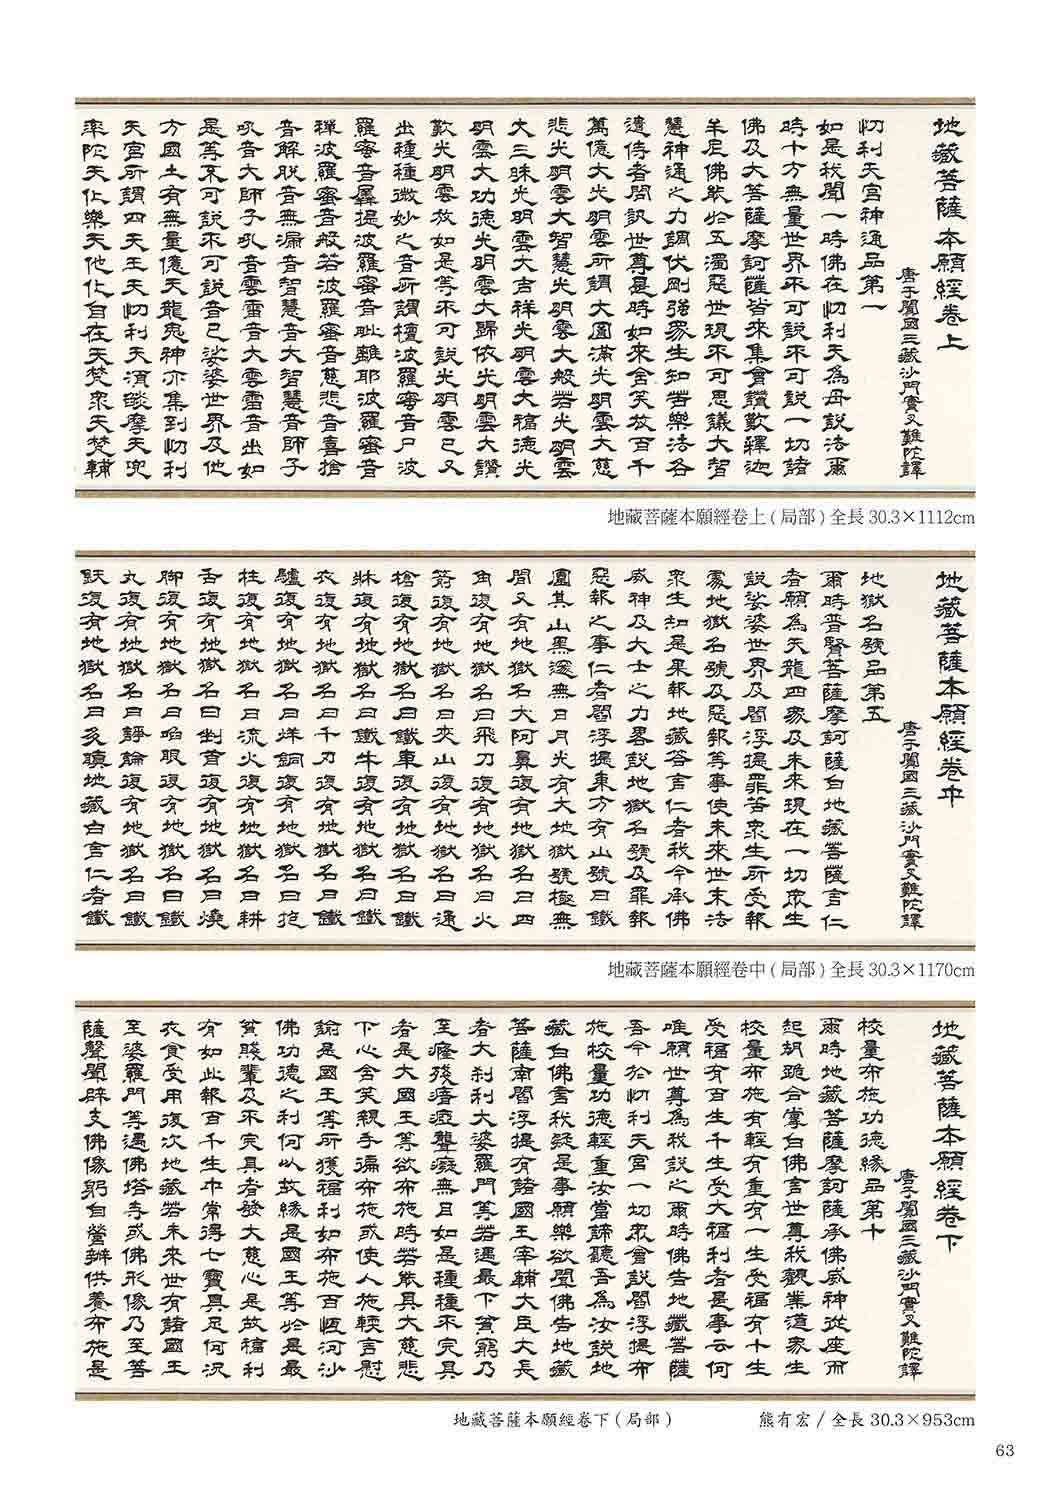 地藏菩薩本願經卷上
唐于闐國三藏沙門實叉難陀譯
忉利天宮神通品第一
如是我聞一時佛在忉利天為母說法爾
時十方無量世界不可說不可說一切諸
佛及大菩薩摩訶薩皆來集會讚歎釋迦
牟尼佛能於五濁惡世現不可思議大智
慧神通之力調伏剛強眾生知苦樂法各
遣侍者問訊世尊是時如來含笑放百千
萬億大光明雲所謂大圓滿光明雲大慈
悲光明雲大智慧光明雲大般若光明雲
大三昧光明雲大吉祥光明雲大福德光
明雲大功德光明雲大歸依光明雲大讚
歎光明雲放如是等不可說光明雲已又
出種種微妙之音所謂檀波羅蜜音尸波
羅蜜音羼提波羅蜜音毗離耶波羅蜜音
禪波羅蜜音般若波羅蜜音慈悲音喜捨
音解脫音無漏音智慧音大智慧音師子
吼音大師子吼音雲雷音大雲雷音出如
是等不可說不可說音已娑婆世界及他
方國土有無量億天龍鬼神亦集到忉利
天宮所謂四天王天忉利天須燄摩天兜
率陀天化樂天他化自在天梵眾天梵輔
地藏菩薩本願經卷上(局部)全長30.3×1112cm
地藏菩薩本願經卷中
唐于闐國三藏沙門實叉難陀譯
地獄名號品第五
爾時普賢菩薩摩訶薩白地藏菩薩言仁
者願為天龍四眾及未來現在一切眾生
說娑婆世界及閻浮提罪苦眾生所受報
處地獄名號及惡報等事使未來世末法
眾生知是果報地藏答言仁者我今承佛
威神及大士之力略說地獄名號及罪報
惡報之事仁者閻浮提東方有山號曰鐵
圍其山黑邃無日月光有大地獄號極無
間又有地獄名大阿鼻復有地獄名曰四
角復有地獄名曰飛刀復有地獄名曰火
箭復有地獄名曰夾山復有地獄名曰通
槍復有地獄名曰鐵車復有地獄名曰鐵
床復有地獄名曰鐵牛復有地獄名曰鐵
衣復有地獄名曰千刃復有地獄名曰鐵
驢復有地獄名曰烊銅復有地獄名曰抱
柱復有地獄名曰流火復有地獄名曰耕
舌復有地獄名曰剉首復有地獄名曰燒
腳復有地獄名曰啗眼復有地獄名曰鐵
丸復有地獄名曰諍論復有地獄名曰鐵
鈇復有地獄名曰多瞋地藏白言仁者鐵
地藏菩薩本願經卷中(局部)全長30.3×1170cm
地藏菩薩本願經卷下
唐于闐國三藏沙門實叉難陀譯
校量布施功德緣品第十
爾時地藏菩薩摩訶薩承佛威神從座而
起胡跪合掌白佛言世尊我觀業道眾生
校量布施有輕有重有一生受福有十生
受福有百生千生受大福利者是事云何
唯願世尊為我說之爾時佛告地藏菩薩
吾今於忉利天宮一切眾會說閻浮提布
施校量功德輕重汝當諦聽吾為汝說地
藏白佛言我疑是事願樂欲聞佛告地藏
菩薩南閻浮提有諸國王宰輔大臣大長
者大剎利大婆羅門等若遇最下貧窮乃
至癃殘瘖瘂聾癡無目如是種種不完具
者是大國王等欲布施時若能具大慈悲
下心含笑親手遍布施或使人施軟言慰
諭是國王等所獲福利如布施百恆河沙
佛功德之利何以故緣是國王等於是最
貧賤輩及不完具者發大慈心是故福利
有如此報百千生中常得七寶具足何況
衣食受用復次地藏若未來世有諸國王
至婆羅門等遇佛塔寺或佛形像乃至菩
薩聲聞辟支佛像躬自營辦供養布施是
地藏菩薩本願經卷下(局部)
熊有宏/全長30.3×953cm
63